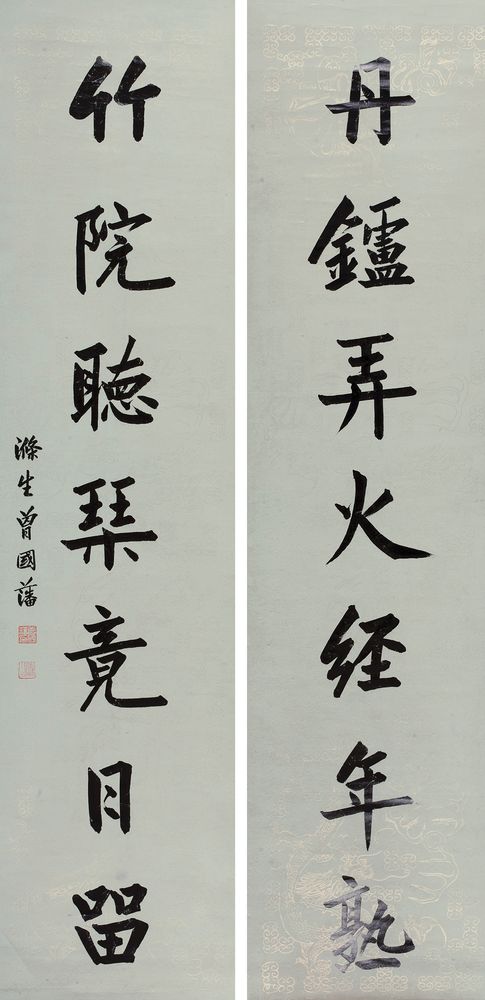 丹鑪弄火经年熟
竹院聴琹竟日留
滌生曾國藩